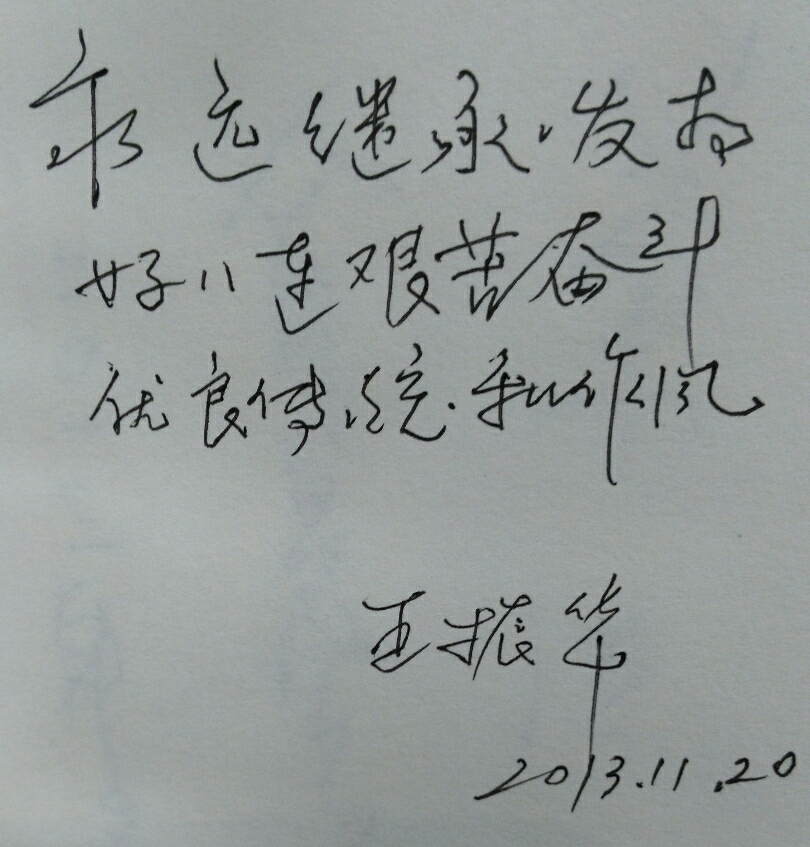 永远继承发扬
好八连艰苦奋斗
优良传统和作风
王振华
2013.11.20